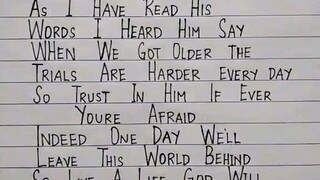 As I Have Read His
Words I Heard Him Say
When We Got Older The
Trials Are Harder every day
So Trust In Him If Ever
Youre Afraid
Indeed One Day We'll
Leave This World Behind
So Live A Life God Will